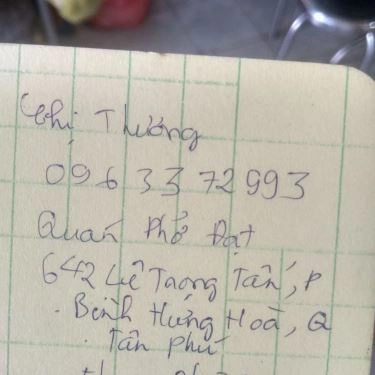 Chị Thương
096 33 72 993
Quán Phở Đạt
642 Lê Trọng Tấn, P
. Bình Hưng Hoà, Q
. Tân Phú